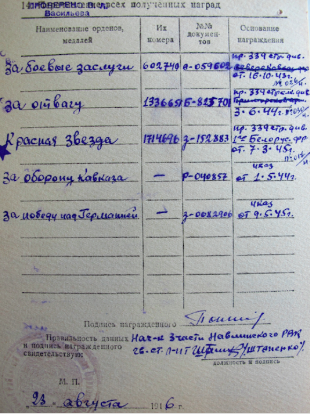 всех полученных наград
Васильева
Наименование орденов, медалей
Их номера
№№ документов
Основание награждения
За боевые заслуги 602740 А-054602 пр. 339 стр. див.
от 16-10-43г.
За отвагу Б-825701 пр. 339 стрелк. див.
3-6-44г.
Красная Звезда 1714696 З-152883 пр. 339 стр. див.
1го Белорус. фр
от. 7-3-45г.
За оборону Кавказа — Р-040857 указ
от 1.5.44г.
За победу над Германией — З-0082906 указ
от 9.5.45г.
Подпись награжденного
Правильность данных и подпись награжденного свидетельствую:
Нач-к 3 части Навлинского РВК
гв. ст. л-нт /Штапенко/
должность и подпись
М. П.
23 августа 1946 г.